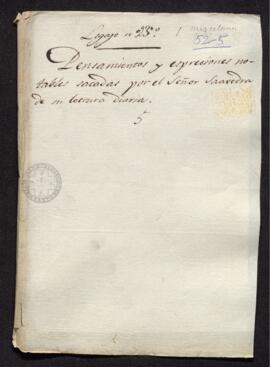 Legajo nº 25.º
52-5
Pensamientos y espresiones no-
tables sacadas por el Señor Saavedra
de su lectura diaria.
5